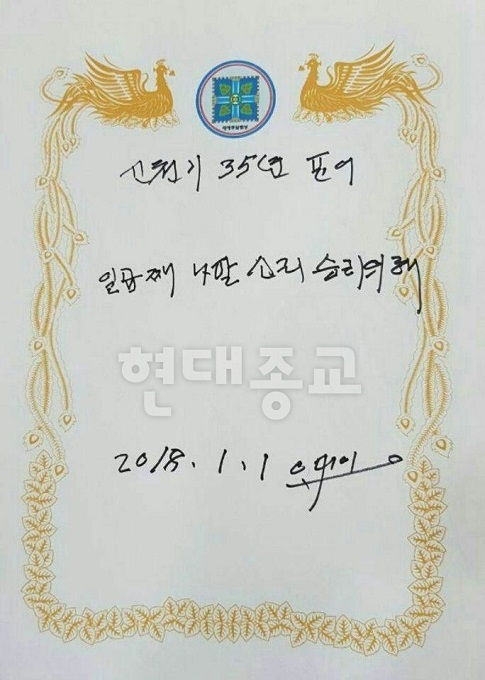 신천기 35년 표어
일곱째 나팔 소리 승리의 해
현대종교
2018. 1. 1